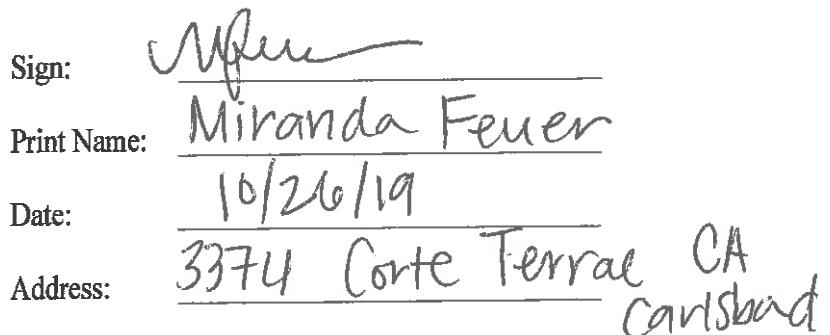 Sign: MFeu
Print Name: Miranda Feuer
Date: 10/26/19
Address: 3374 Corte Terral CA
Carlsbad